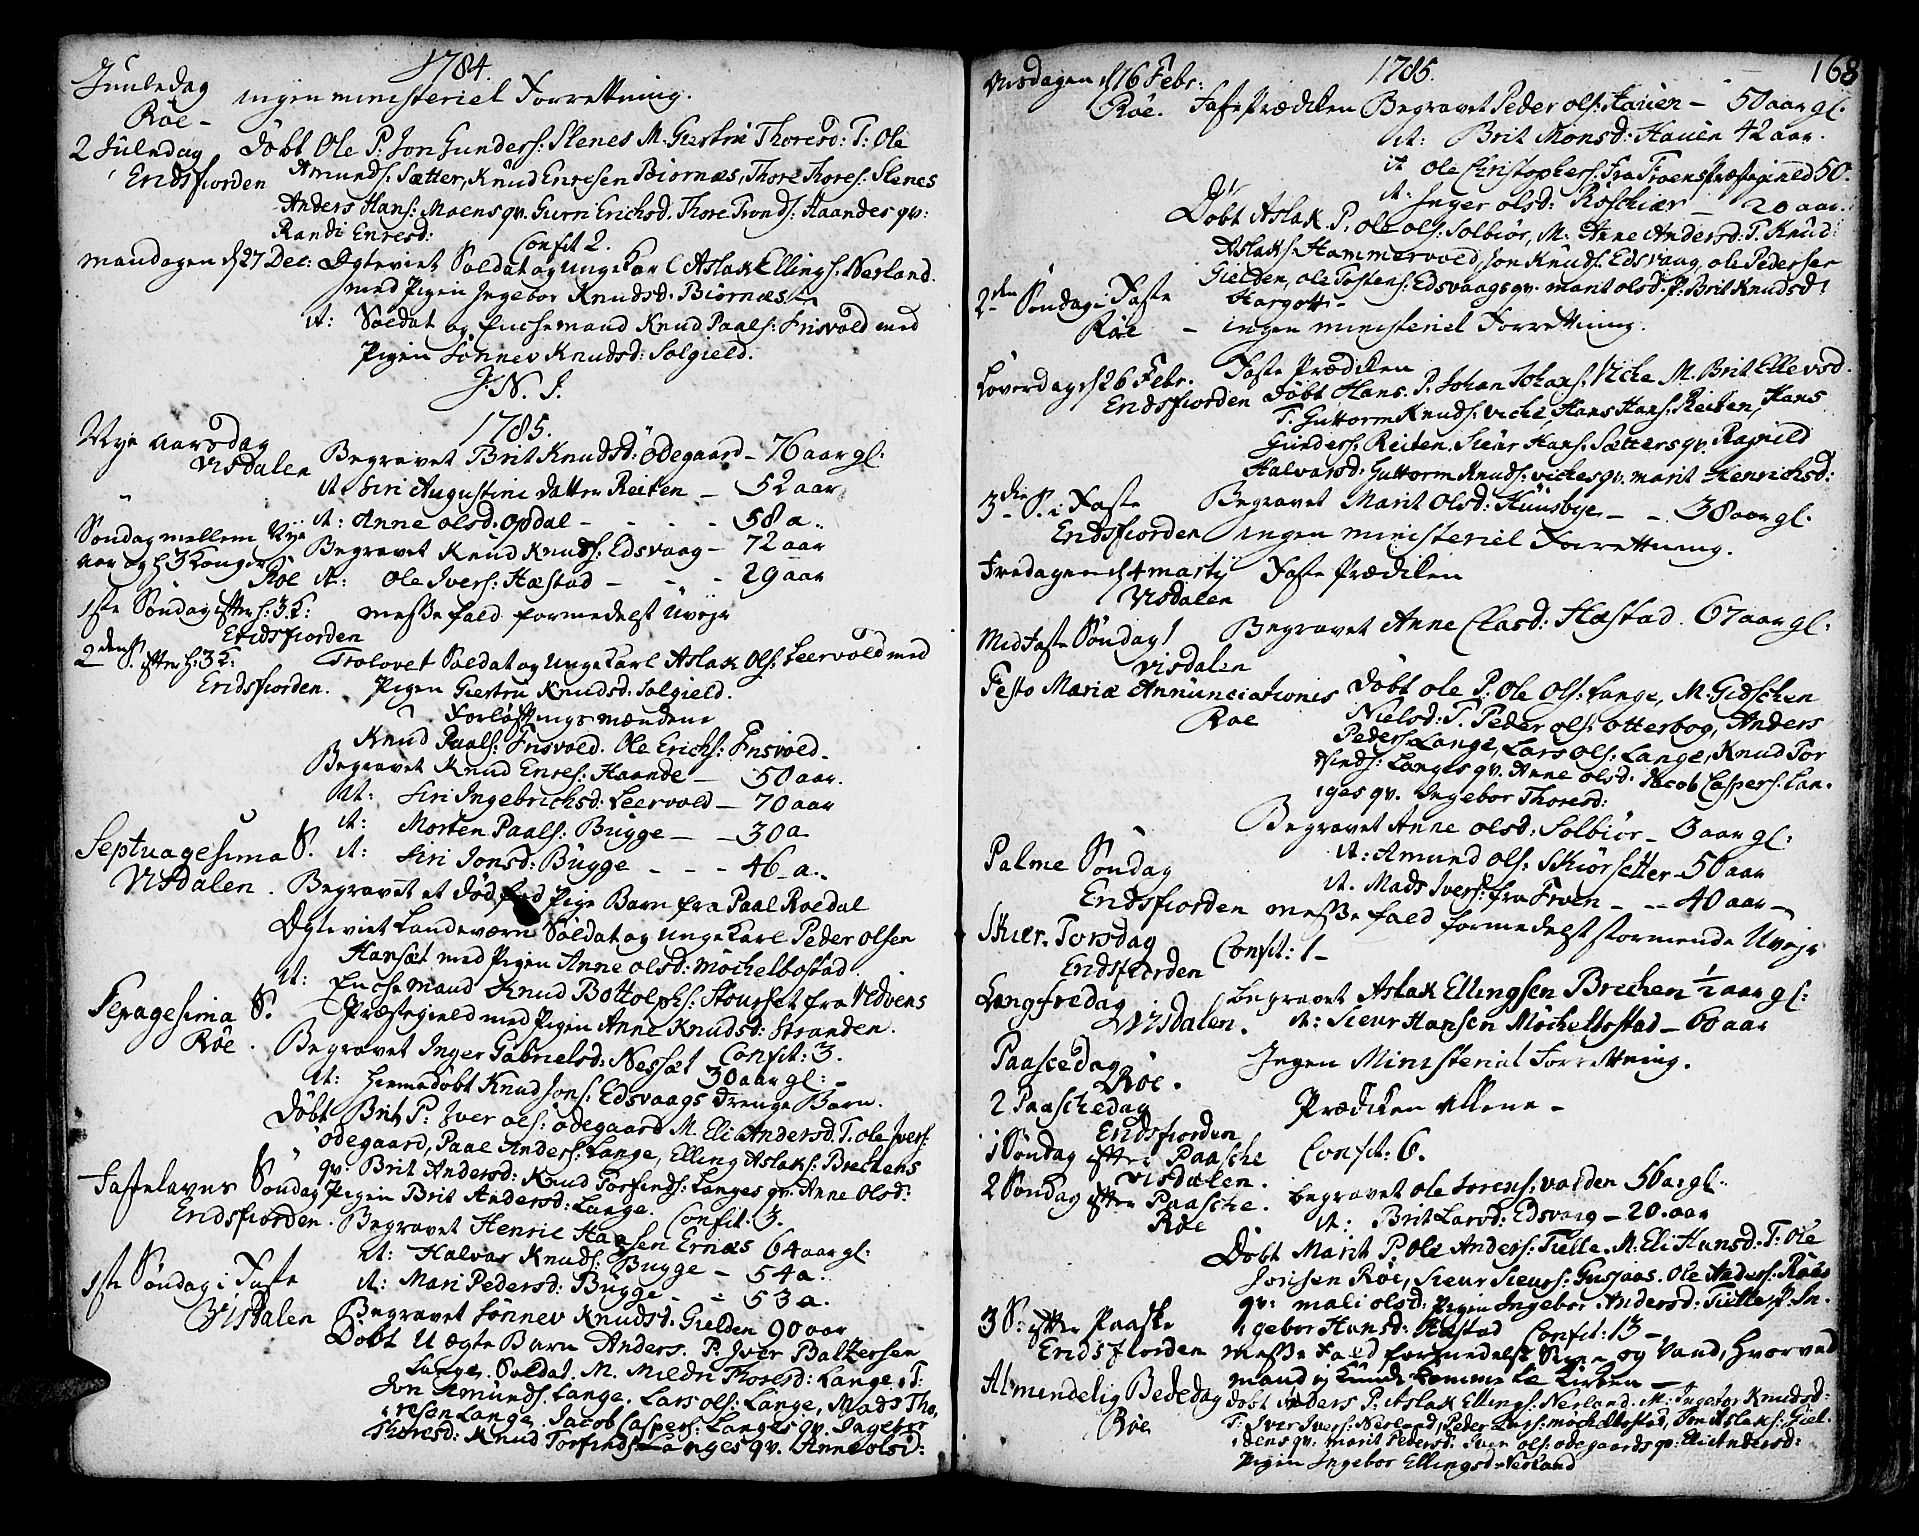 1784.
Juuledag Røe - ingen ministeriel Forrettning.
2 Juledag Eridsfiorden Døbt Ole P. Jon Gunders: Slenes M. Giertru Thoresd: T: Ole
Amunds: Sætter, Knud Enresen Biørnæs, Thore Thores: Slenes
Anders Hans: Moens qv. Gurri Erichsd. Thore Tronds: Haandes qv:
Randi Enresd:
Confit 2.
Mandagen d 27 Dec: Ægteviet Soldat og Unge Karl Aslak Ellings: Nerland
med Pigen Ingebor Knudsd. Biørnæs
it: Soldat og Enchemand Knud Paals: Frisvold med
Pigen Sønnev Knudsd: Solgield.
J. N. J.
1785.
Nye Aarsdag Visdalen Begravet Brit Knudsd: Ødegaard - 76 aar gl:
it Siri Augustini datter Reiten - 52 aar
it: Anne olsd. Opdal - - - - 58 a..
Søndag mellem Nye
aar og H 3 Konger Røe Begravet Knud Knuds: Edsvaag - 72 aar
it: Ole Ivers: Hæstad - - - 29 aar
1ste Søndag efter H: 3 K: Eridsfiorden messe fald formedelst Uveir
2den S. efter H: 3 K: Eridsfiorden. Trolovet Soldat og Unge Karl Aslak Ols: Leervold med
Pigen Giertru Knudsd: Solgield.
Forløftnings mændene
Knud Paals: Frisvold. Ole Erichs: Frisvold.
Begravet Knud Enres: Haande - 50 aar.
it: Siri Ingebrichsd: Leervold - 70 aar
it: Morten Paals: Bugge - - 30 a.
it: Siri Jonsd: Bugge - - - 46 a..
Septuagesima S. Visdalen. Begravet et død fød Pige Barn fra Paal Roedal
Ægteviet Landeværn Soldat og unge Karl Peder olsen
Hansæt med Pigen Anne olsd: Möchelbostad
it: Enchemand Knud Bottolphs: Stoursæt fra Vedøens
Præstegield med Pigen Anne Knudsd: Stranden.
Sexagesima S. Røe. Confit: 3.
Begravet Inger Gabrielsd: Nessæt 30 aar gl: -
it: hiemedøbt Knud Jons: Edsvaags drenge Barn.
Døbt Brit P: Iver ols: Ødegaard M. Eli Andersd. T. ole Ivers:
Ødegaard, Paal Anders: Lange, Elling Aslaks: Brechens
qv. Brit Andersd: Knud Torfinds: Langes qv. Anne Olsd:
Pigen Brit Andersd: Lange.
Fastelavns Søndag Eridsfiorden. Confit: 3.
Begravet Henric Hansen Ernæs 64 aar gl:
it: Halvar Knuds: Bugge - 54 a.
it: Mari Pedersd: Bugge - - 53 a.
1ste Søndag i Faste Visdalen Begravet Sønnev Knudsd: Gielden 90 aar
Døbt U ægte Barn Anders. P. Iver Baltzersen
Lange. Soldat. M. Mildri Thoresd: Lange, T:
Jon Amunds: Lange, Lars ols: Lange, Mads Tho,
resen Lange, Jacob Caspers: Langes qv. Ingebor
Thoresd: Knud Torfinds: Langes qv. Anne olsd:
1785. 168
Onsdagen d 16 Febr: Røe. Faste Prædiken Begravet Peder ols: Hauen - 50 aar gl.
it: Brit Monsd: Hauen 42 aar.
it ole Christophers: fra Froens Præstegield 50.
it: Inger olsd: Röschiær - 20 aar.
Döbt Aslak. P. ole ols: Solbiör, M. Anne Andersd: T. Knud
Aslaks: Hammervold, Jon Knuds: Edsvaag, ole Pedersen
Gielden, ole Tostens: Edsvaags qv. marit olsd. P: Brit Knudsd:
Hargott -
2den Søndag i Faste Røe - ingen ministeriel Forrettning.
Løverdag d 26 Febr. Eridsfiorden Faste Prædiken
Døbt Hans. P. Johan Johans: Viche M. Brit Ellevsd.
T. Guttorm Knuds: Viche, Hans Hans: Reiten, Hans
Gunders: Reiten. Siver Hans: Sætters qv. Ragnild
Halvarsd: Guttorm Knuds: Viches qv. marit Henrichsd:
3die S. i Faste Eridsfiorden Begravet Marit Olsd: Huusbye - - 38 aar gl.
ingen ministeriel Forrettning.
Fredagen d 4 marty Visdalen Faste Prædiken
Mid Faste Søndag Visdalen Begravet Anne Clasd: Hæstad. 67 aar gl:
Festo Mariæ Annunciationis Røe Døbt ole P: Ole Ols: Lange, M: Gidschen
Nielsd: T. Peder ols: Otterbog, Anders
Peders: Lange, Lars ols: Lange, Knud Tor
finds: Langes qv. Anne olsd: Jacob Caspers: Lan,
ges qv. Ingebor Thoresd:
Begravet Anne olsd: Solbiör - 8 aar gl:
it: Amund ols: Skiörsetter - 50 aar
it. Mads Ivers: fra Froen - - 40 aar -
Palme Søndag Eridsfiorden messe fald formedelst stormende Uveir
Skier. Torsdag Eridsfiorden Confit: 1 -
Langfredag Visdalen. Begravet Aslak Ellingsen Brechen 1/2 aar gl:
it: Sieur Hansen Möchelbostad - 60 aar
Paaschedag Røe. Ingen Ministerial Forrettning.
2 Paaschedag Eridsfiorden Prædiken Allene -
1 Søndag efter Paasche Visdalen. Confit: 6.
2 Søndag efter Paasche. Røe Begravet ole Sorens: Valden 56 ar gl.
it: Brit Larsd: Edsvaag - 20 aar
Døbt Marit P. Ole Anders: Tielle. M: Eli Hansd: T: Ole
Jonsen Røe, Sieur Sieurs: Gusjaas. Ole Anders: Røes
qv: mali olsd: Pigen Ingebor Andersd: Tielle P: In,
gebor Hansd: Hæstad Confit: 13 -
3 S. efter Paaske Eridsfiorden messe fald formedelst Snee og Vand, hvorved
mand ej kunde komme til Kirken -
Almendelig Bededag Røe Døbt Anders P: Aslak Ellings: Nerland. M: Ingebor Knudsd:
T: Iver Ivers: Nerland, Peder Lars: möchelbostad, Jon Aslaks: Giel,
dens qv: marit Pedersd: Iver ols: ødegaards qv: Eli Andersd:
Pigen Ingebor Ellingsd: Nerland